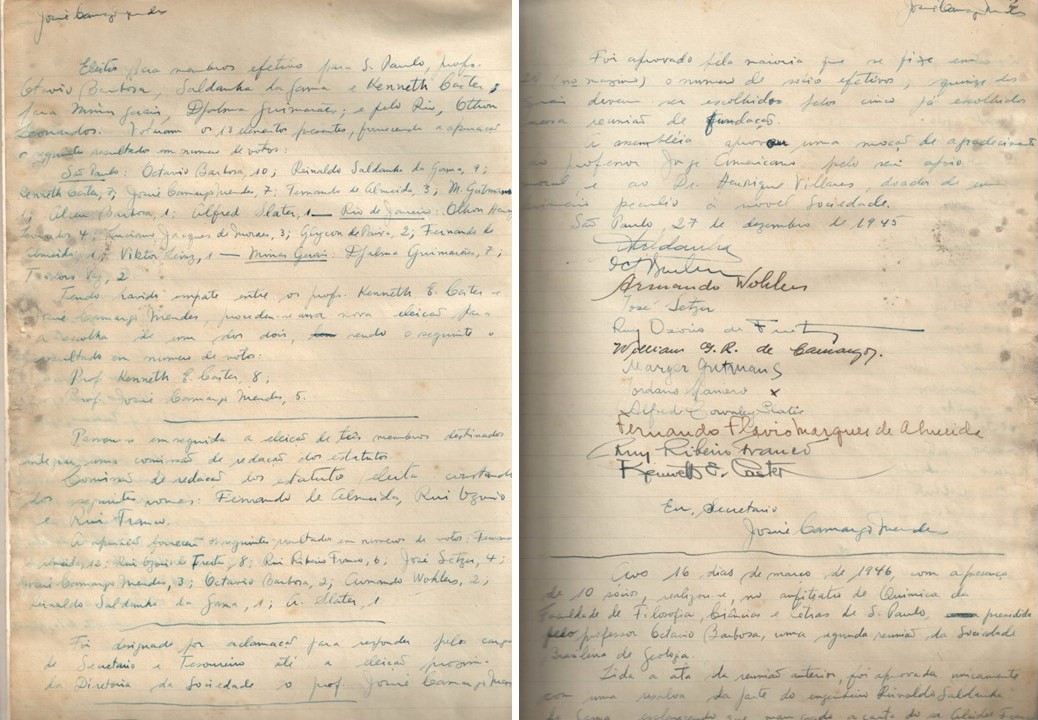 José Camargo Mendes
Eleitos para membros efetivos para S. Paulo, profs.
Octavio Barbosa, Saldanha da Gama e Kenneth Caster;
para Minas Gerais, Djalma Guimarães; e pelo Rio, Othon
Leonardos. Votaram os 13 elementos presentes, fornecendo a apuração
o seguinte resultado em numero de votos:
São Paulo: Octavio Barbosa, 10; Reinaldo Saldanha da Gama, 9;
Kenneth Caster, 7; José Camargo Mendes, 7; Fernando de Almeida, 3; M. Gutmans
Alceu Barbosa, 1; Alfred Slater, 1 — Rio de Janeiro: Othon Henry
4; Luciano Jacques de Moraes, 3; Glycon de Paiva, 2; Fernando de
Almeida, 1; Viktor Leinz, 1 — Minas Gerais: Djalma Guimarães, 7;
2
Tendo havido empate entre os profs. Kenneth E. Caster e
José Camargo Mendes, procedeu-se uma nova eleição para
a escolha de um dos dois, sendo o seguinte o
resultado em numero de votos:
Prof. Kenneth E. Caster, 8;
Prof. José Camargo Mendes, 5.
Passou-se em seguida a eleição de três membros destinados
uma comissão de redação dos estatutos.
Comissão de redação dos estatutos eleita constando
dos seguintes nomes: Fernando de Almeida, Rui Ozorio
e Rui Franco.
A apuração forneceu o seguinte resultado em numero de votos:
Almeida, Rui Ozorio de Freitas, 8; Rui Ribeiro Franco, 6; José Setzer, 4;
José Camargo Mendes, 3; Octavio Barbosa, 2; Armando Wohlers, 2;
Reinaldo Saldanha da Gama, 1; A. Slater, 1
Foi designado por aclamação para responder pelo cargo
de Secretario e Tesoureiro até a eleição
da Diretoria da Sociedade o prof. José Camargo Mendes
José Camargo Mendes
Foi aprovado pela maioria que se fixe em
(no maximo) o numero de sócios efetivos, quinze dos
quais devem ser escolhidos pelos cinco já escolhidos
nessa reunião de fundação.
A assembléia aprovou uma moção de agradecimento
ao professor Jorge Americano pelo seu apoio
moral, e ao Dr. Henrique Villares, doador de um
peculio à novel Sociedade.
São Paulo, 27 de dezembro de 1945
Armando Wohlers
José Setzer
Ruy Ozorio de Freitas
William G. R. de Camargo.
Marger Gutmans
Alfred Slater
Fernando Flavio Marques de Almeida
Ruy Ribeiro Franco
Kenneth E. Caster
Eu, Secretario
José Camargo Mendes
Aos 16 dias de março de 1946, com a presença
de 10 sócios, realizou-se, no anfiteatro de Química da
Faculdade de Filosofia, Ciências e Letras de S. Paulo, presidida
pelo professor Octavio Barbosa, uma segunda reunião da Sociedade
Brasileira de Geologia.
Lida a ata da reunião anterior, foi aprovada unicamente
com uma da parte do engenheiro Reinaldo Saldanha
da Gama